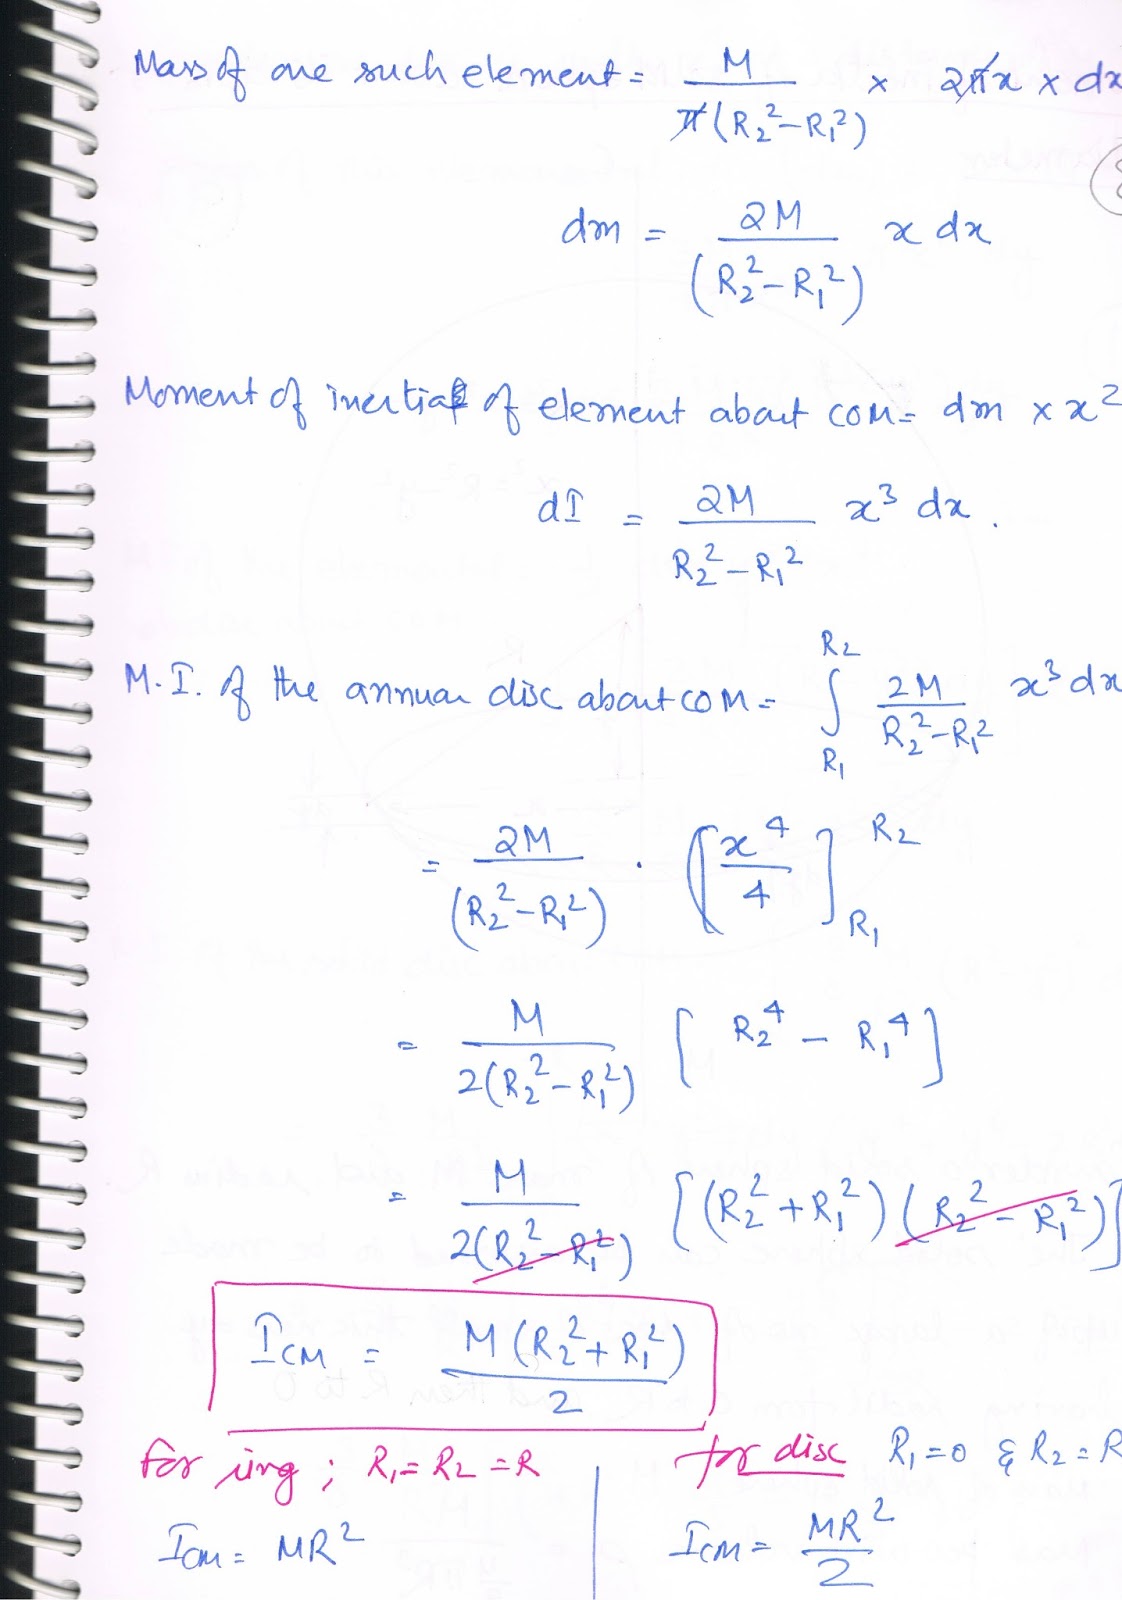 Mass of one such element = M/(π(R₂²–R₁²)) × 2πx × dx
dm = 2M/(R₂²–R₁²) x dx
Moment of inertia of element about COM = dm × x²
dI = 2M/(R₂²–R₁²) x³ dx.
M.I. of the annuar disc about COM = ∫_{R₁}^{R₂} 2M/(R₂²–R₁²) x³ dx
= 2M/(R₂²–R₁²) · [x⁴/4]_{R₁}^{R₂}
= M/(2(R₂²–R₁²)) [R₂⁴ – R₁⁴]
= M/(2(R₂²–R₁²)) [(R₂²+R₁²)(R₂²–R₁²)]
I_CM = M(R₂²+R₁²)/2
for ring ; R₁= R₂ =R
I_CM = MR²
for disc R₁=0 & R₂=R
I_CM = MR²/2